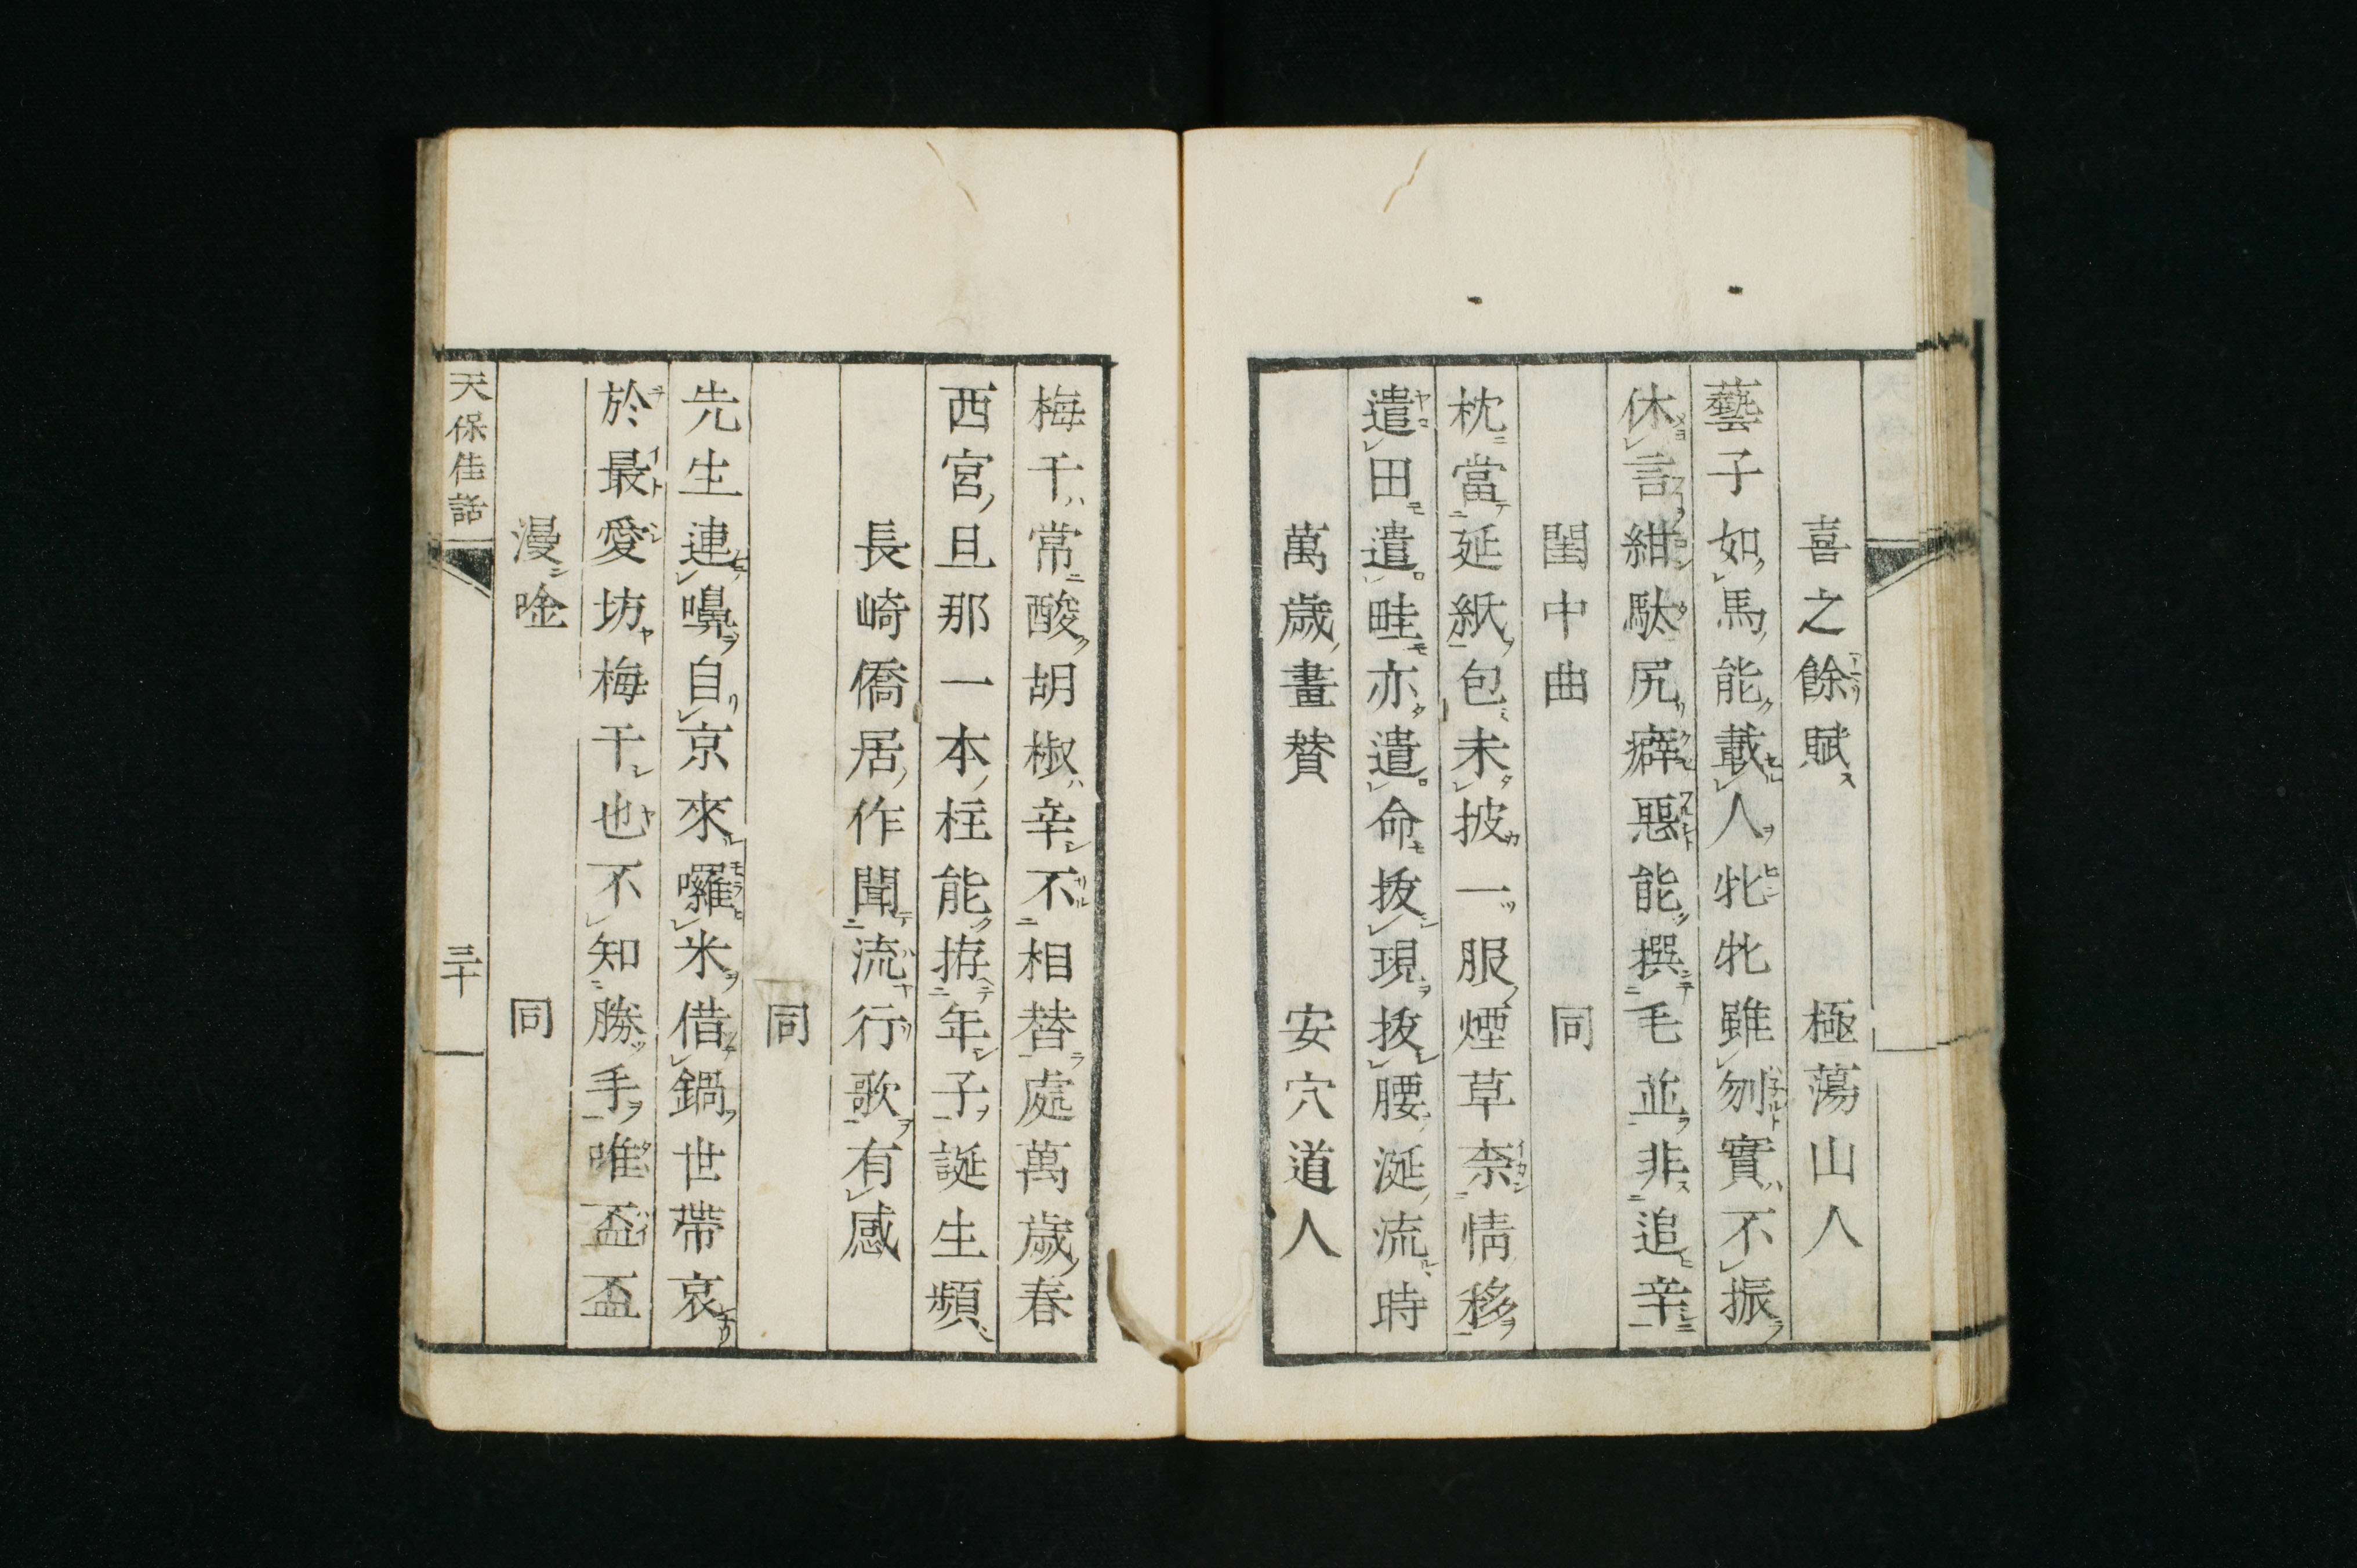 喜之餘賦　極蕩山人
藝子如馬能載人牝牝雖刎實不振
休言紺駄尻癖惡能撰毛並非追辛
閨中曲　同
枕當延紙包未披一服煙草奈情移
遣田遣畦亦遣命抜現抜腰涎流時
萬歲畫賛　安穴道人
梅干常酸胡椒辛不相替處萬歲春
西宮旦那一本柱能拵年子誕生頻
長崎僑居作聞流行歌有感
同
先生連嚊自京來囉米借鍋世帶哀
於最愛坊梅干也不知勝手唯盃盃
漫唫　同
天保佳話
三十